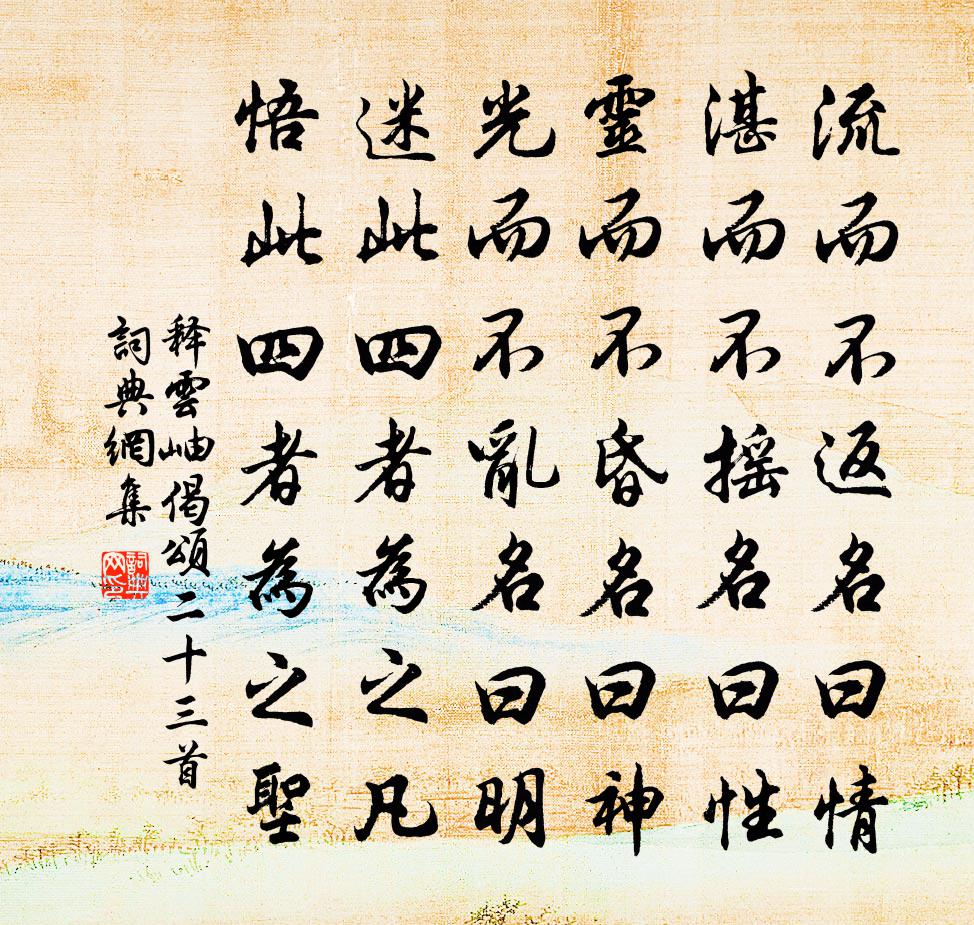 流而不返名曰情
湛而不摇名曰性
靈而不昏名曰神
光而不亂名曰明
迷此四者為之凡
悟此四者為之聖
释雲岫偈頌二十三首
詞典網集